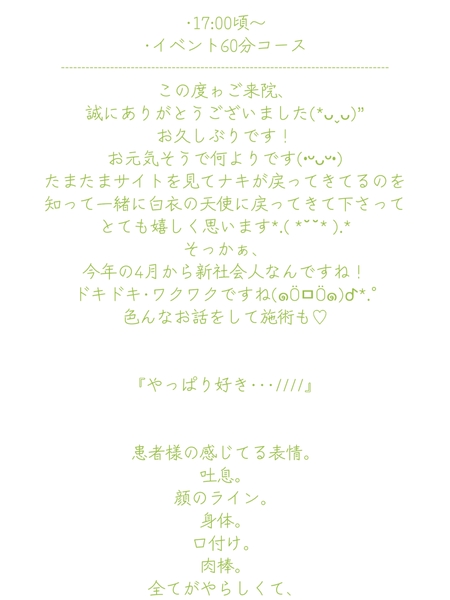 ･17:00頃〜
･イベント60分コース
--------------------------------------------------------------------------------
この度ゎご来院、
誠にありがとうございました(*ᴗˬᴗ)”
お久しぶりです！
お元気そうで何よりです(•ᴗ•)
たまたまサイトを見てナキが戻ってきてるのを
知って一緒に白衣の天使に戻ってきて下さって
とても嬉しく思います*.( *˘˘* ).*
そっかぁ、
今年の4月から新社会人なんですね！
ドキドキ･ワクワクですね(๑Ӧㅁӧ๑)♪*.°
色んなお話をして施術も♡
『やっぱり好き･･･////』
患者様の感じてる表情。
吐息。
顔のライン。
身体。
口付け。
肉棒。
全てがやらしくて、